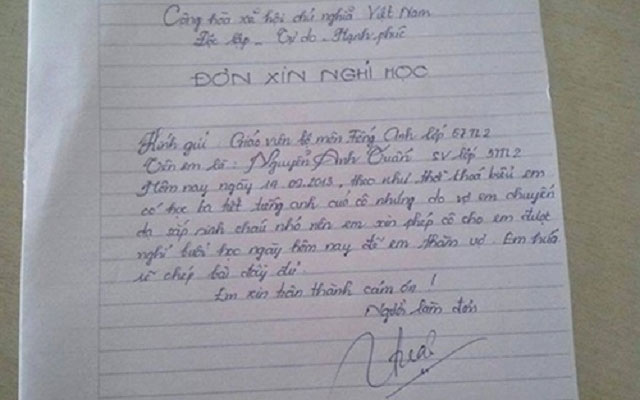 Cộng hòa xã hội chủ nghĩa Việt Nam
Độc lập - Tự do - Hạnh phúc
ĐƠN XIN NGHỈ HỌC
Kính gửi : Giáo viên bộ môn Tiếng Anh lớp 57TL2
Tên em là : Nguyễn Anh Tuấn SV lớp 57TL2
Hôm nay ngày 19.09.2013, theo như thời khoá biểu em
có học 12 tiết tiếng anh của cô nhưng do vợ em chuyển
dạ sắp sinh cháu nhỏ nên em xin phép cô cho em được
nghỉ buổi học ngày hôm nay để em thăm vợ. Em hứa
sẽ chép bài đầy đủ.
Em xin trân thành cảm ơn !
Người làm đơn